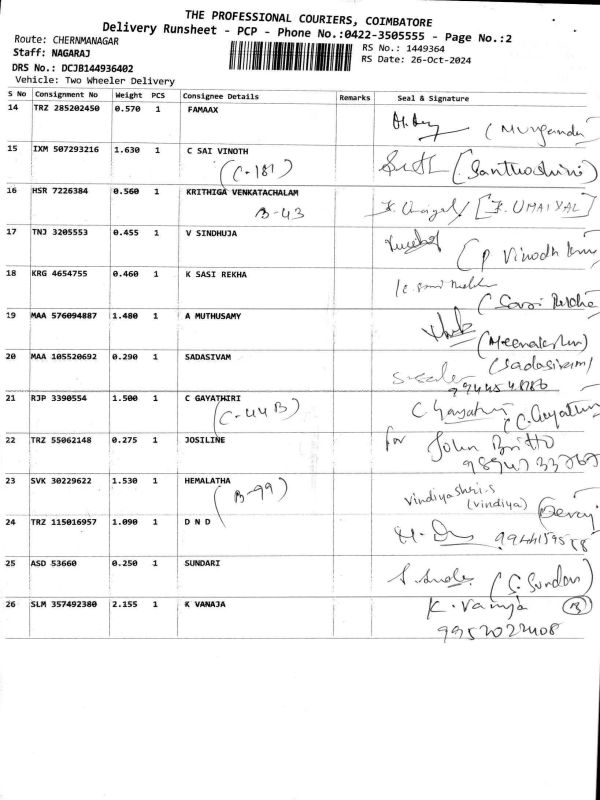 THE PROFESSIONAL COURIERS, COIMBATORE
Delivery Runsheet - PCP - Phone No.:0422-3505555 - Page No.:2
Route: CHERNMANAGAR
RS No.: 1449364
Staff: NAGARAJ
RS Date: 26-Oct-2024
DRS No.: DCJB144936402
Vehicle: Two Wheeler Delivery
S No Consignment No Weight PCS Consignee Details Remarks Seal & Signature
14 TRZ 285202450 0.570 1 FAMAAX
(Murgandu
15 IXM 507293216 1.630 1 C SAI VINOTH
(C-181) (Santhoshini)
16 HSR 7226384 0.560 1 KRITHIGA VENKATACHALAM
B-43 [K. UMAIYAL]
17 TNJ 3205553 0.455 1 V SINDHUJA
(P Vinodh
18 KRG 4654755 0.460 1 K SASI REKHA
(Sasi Rekha
19 MAA 576094887 1.480 1 A MUTHUSAMY
(Meenakshi)
20 MAA 105520692 0.290 1 SADASIVAM (Sadasivam)
21 RJP 3390554 1.500 1 C GAYATHIRI
(C-44B) C Gayathri (C. Gayathri
22 TRZ 55062148 0.275 1 JOSILINE for John Britto
23 SVK 30229622 1.530 1 HEMALATHA
(B-99) Vindiyashri.S
(vindiya)
24 TRZ 115016957 1.090 1 D N D
25 ASD 53660 0.250 1 SUNDARI
(S. Sundari
26 SLM 357492380 2.155 1 K VANAJA K. Vanaja (B)
9952022408